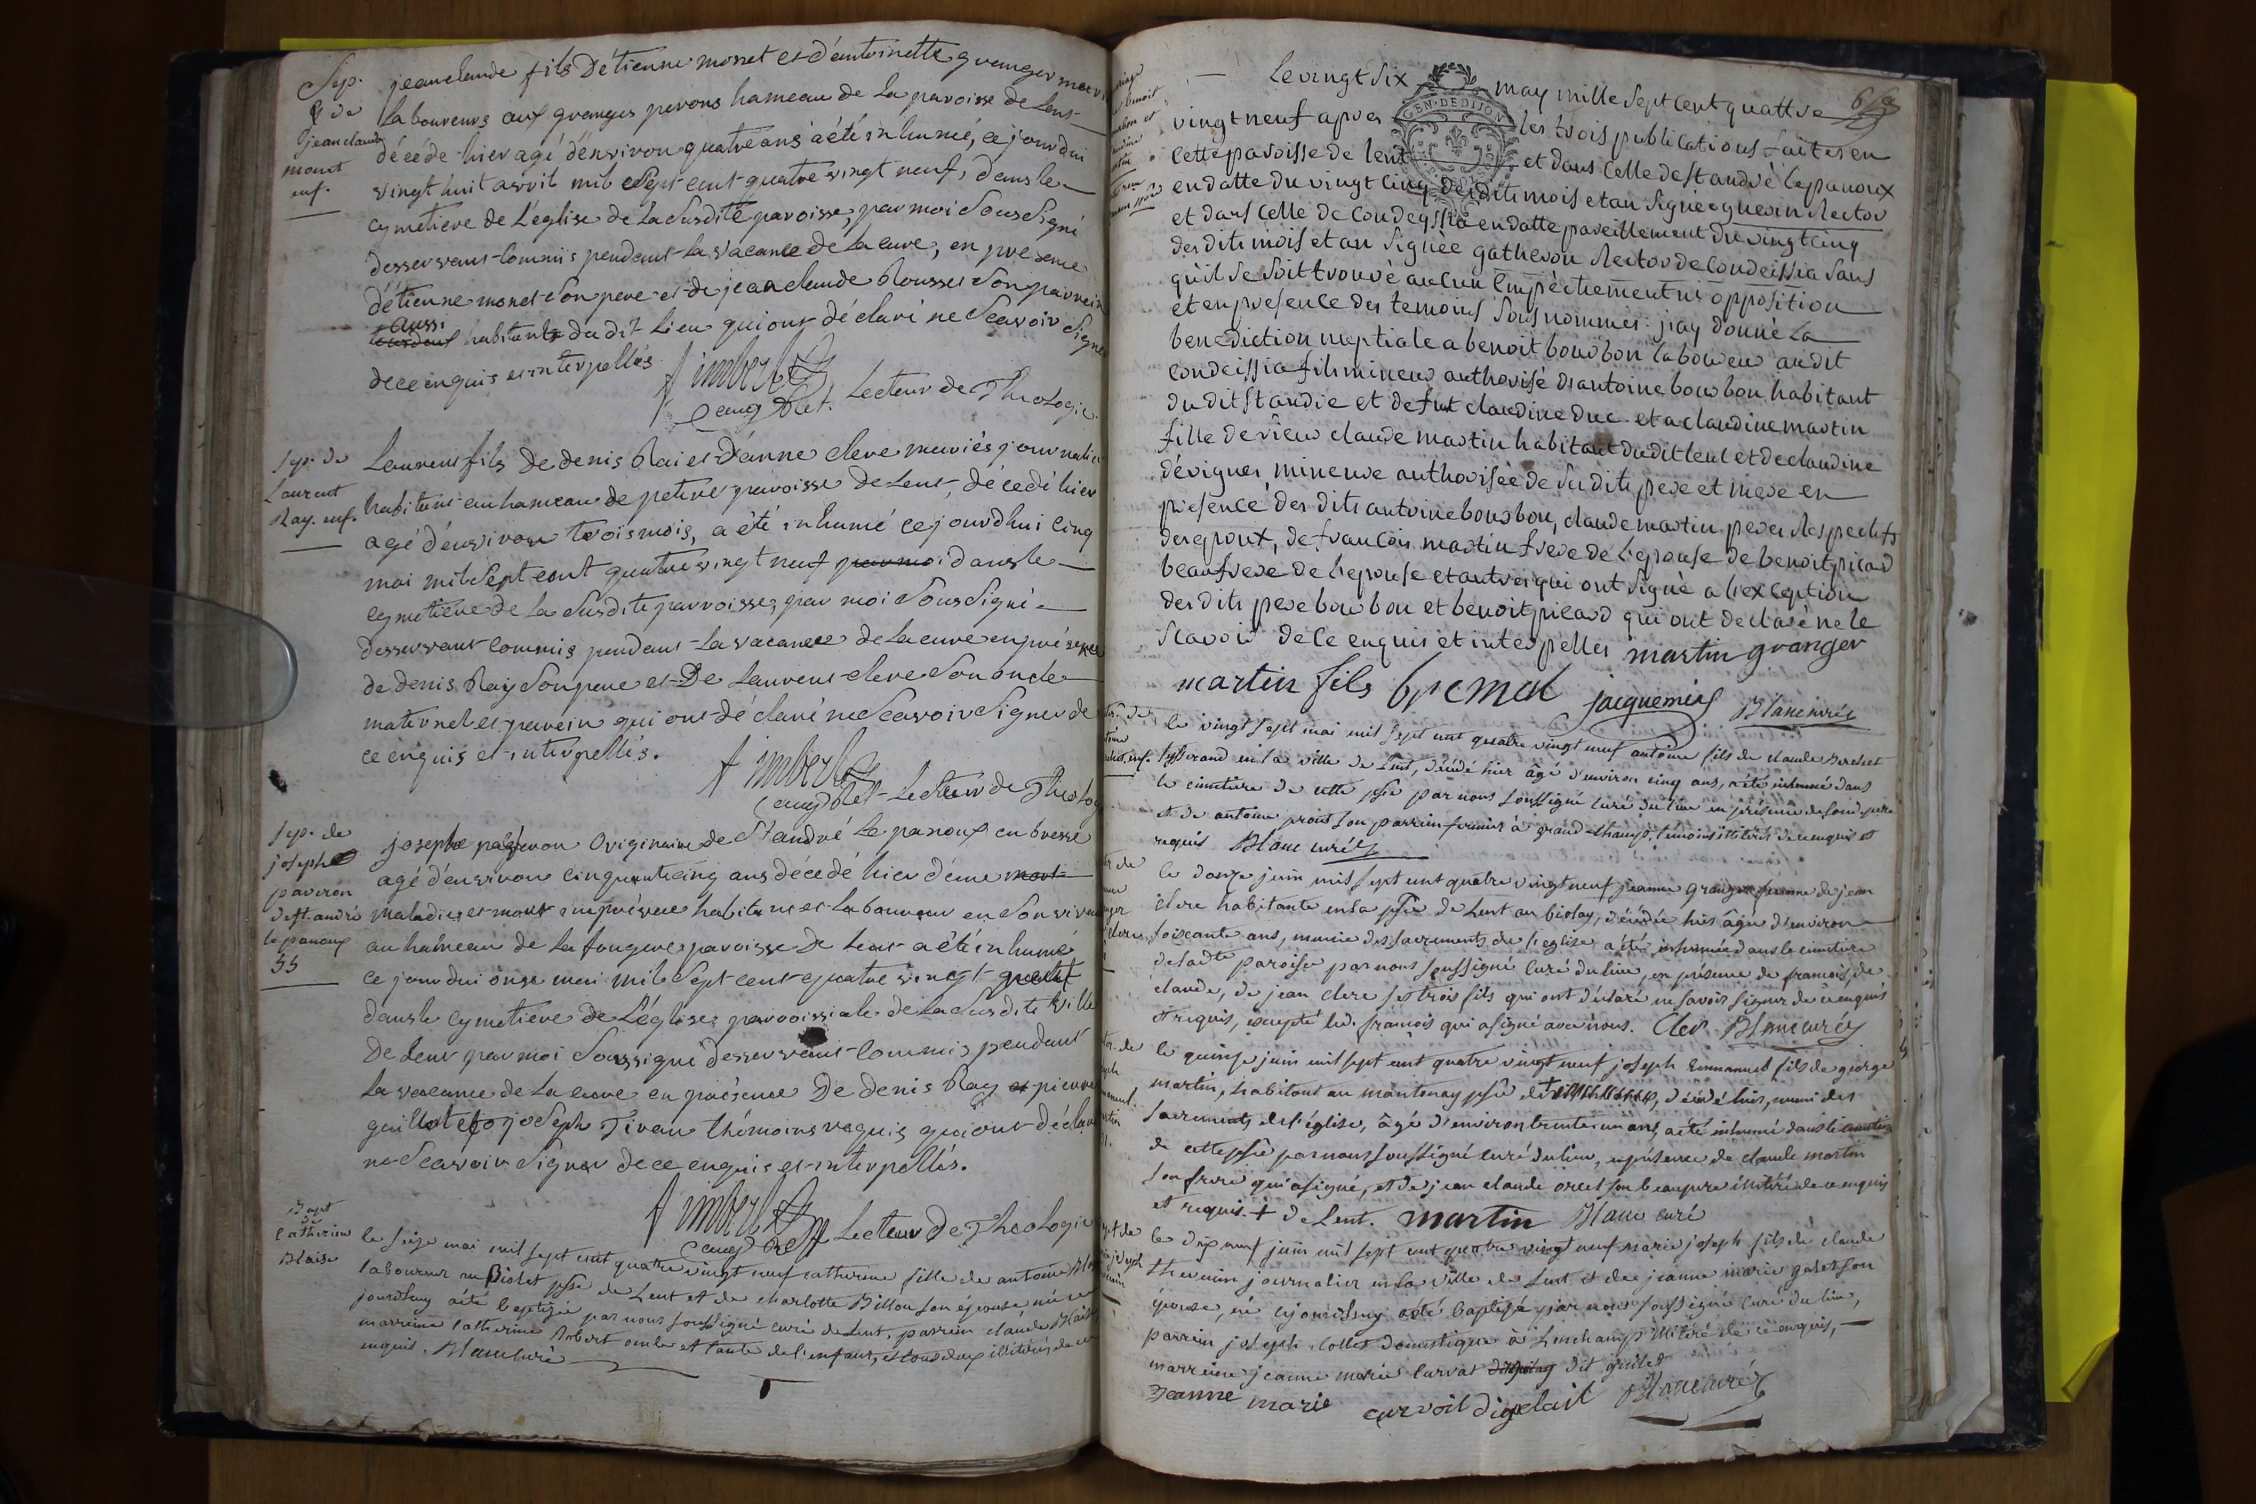 Sep.
de
jean claude
monet
enf.
jean claude fils d'etienne monet et d'antoinette granger mariés
laboureurs aux granges perons hameau de la paroisse de Lent
décédé hier agé d'environ quatre ans a été inhumé, ce jourdui
vingt huit avril mil sept cent quatre vingt neuf, dans le
cymetiere de l'église de la susdite paroisse, par moi soussigné
desservant commis pendant la vacance de la cure, en presence
d'étienne monet son pere et de jean claude Rousset son parrein
aussi habitants dudit lieu qui ont déclaré ne scavoir signer
de ce enquis et interpellés.
f imbert
Lecteur de Theologie
Sep. de
Laurent
Ray. enf.
Laurent fils de denis Rai et d'anne clerc mariés journaliers
habitans au hameau de paroisse de Lent, décédé hier
agé d'environ trois mois, a été inhumé ce jourdhui cinq
mai mil sept cent quatre vingt neuf par moi dans le
cymetiere de la susdite parroisse, par moi soussigné
desservant commis pendant la vacance de la cure en présence
de denis Ray son pere et De Laurent clerc son oncle
maternel et parrein qui ont déclaré ne scavoir signer de
ce enquis et interpellés.
f imbert
Lecteur de Theolog
Sep. de
joseph
paveron
de st. andré
le panoux
55
joseph originaire de St andré le panoux en bresse
agé d'environ cinquante cinq ans décédé hier d'une mort
maladie et mort imprévue habitant et laboureur en son vivant
au hameau de la fougere paroisse De Lent a été inhumé
ce jourdui onze mai mil sept cent quatre vingt
dans le cymetiere de l'église paroissiale de la susdite ville
De Lent par moi soussigné desservant commis pendant
la vacance de la cure en présence De denis Ray et pierre
guillot et joseph Tivan thémoins requis qui ont déclaré
ne scavoir signer de ce enquis et interpellés.
f imbert
Lecteur de Theologie
Bapt
de
catherine
Blaise
le seize mai mil sept cent quatre vingt neuf catherine fille de antoine
laboureur au Biolet psse de Lent et de charlotte Billon son épouse née ce
jourdhuy a été baptizée par nous soussigné curé de Lent, parrein claude Blaise
marreine catherine Robert oncle et tante de l'enfant, et tous deux illiterés de ce
enquis. Blanc curé
Le vingt six may mille sept cent quattre
GEN. DE DIJON
vingt neuf apres les trois publications faites en
cette paroisse de lent et dans celle de st andré le panoux
en datte du vingt cinq desdits mois et an signée guerin Rector
et dans celle de Condeyssia en datte pareillement du vingt cinq
desdits mois et an signée gatheron Rector de Condeissia sans
qu'il se soit trouvé aucun Empéchement ni opposition
et en presence des temoins sousnommes j'ay donné la
benediction nuptiale a benoit bourbon laboureur audit
condeissia fils mineur authorisé d'antoine bourbon habitant
dudit st andré et de fut claudine duc et a claudine martin
fille de sieur claude martin habitant dudit lent et de claudine
dévignes, mineure authorisée de sudits pere et mere en
presence des dits antoine bourbon, claude martin peres Respectifs
des epoux, de francois martin frere de l'epouse de benoit picard
beaufrere de l'epouse et autres qui ont signé a l'exception
des dits pere bourbon et benoit picard qui ont declaré ne le
scavoir de ce enquis et interpelles martin granger
martin fils jacquemin Blanc curé
le vingt sept mai mil sept cent quatre vingt neuf antoine fils de claude
tisserand en la ville de Lent, décédé hier âgé d'environ cinq ans, a été inhumé dans
le cimetiere de cette psse par nous soussigné curé du lieu en présence de son dit pere
et de antoine proit son parrein fermier à grand-champ, témoins illiterés de ce enquis et
requis Blanc curé
le douze juin mil sept cent quatre vingt neuf jeanne granger femme de jean
clerc habitante en la psse de Lent au biolay, décédée hier âgée d'environ
soixante ans, munie des sacrements de l'eglise a été inhumée dans le cimetiere
de ladte paroisse par nous soussigné curé du lieu, en présence de francois, de
claude, de jean clerc ses trois fils qui ont déclaré ne savoir signer de ce enquis
et requis, excepté led. françois qui a signé avec nous. Clerc Blanc curé
le quinze juin mil sept cent quatre vingt neuf joseph Emmanuel fils de george
martin, habitant au mantenay psse de décédé hier, muni des
sacrements de l'église, âgé d'environ trente un ans, a été inhumé dans le cimetiere
de cette psse par nous soussigné curé du lieu, en présence de claude martin
son frere qui a signé, et de jean claude orcet son beaupere illitéré de ce enquis
et requis. + de Lent. martin Blanc curé
le dix neuf juin mil sept cent quatre vingt neuf marie joseph fils de claude
thevenin journalier en la ville de Lent et de jeanne marie galet son
épouse, né ce jourdhuy a été baptisé par nous soussigné curé du lieu,
parrein joseph collet domestique à Linchamps illitéré de ce enquis,
marreine jeanne marie curvat dit
Jeanne marie Blanc curé